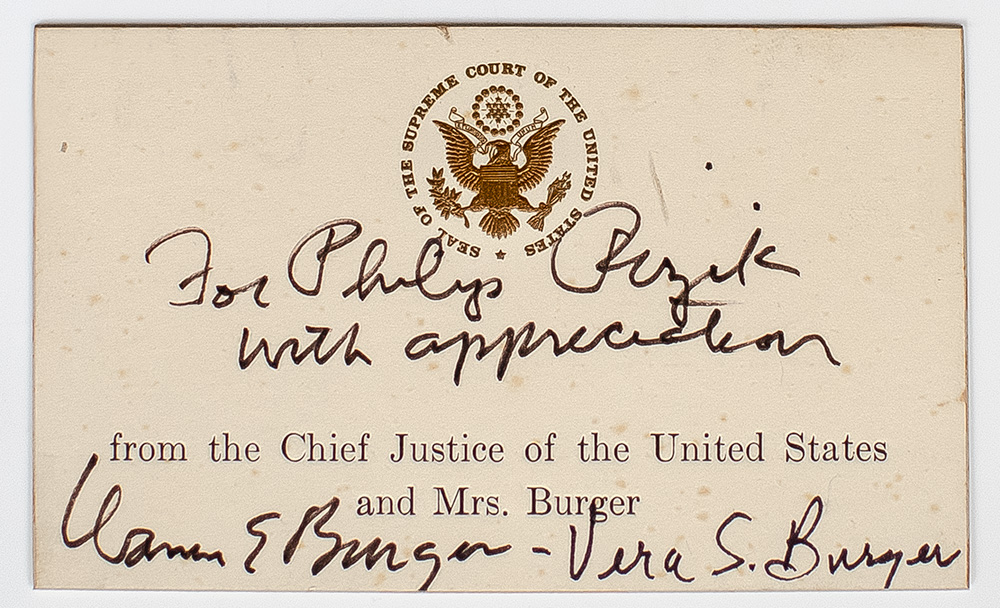 SEAL OF THE SUPREME COURT OF THE UNITED STATES
For Philys
with appreciation
from the Chief Justice of the United States
and Mrs. Burger
Warren E Burger - Vera S. Burger